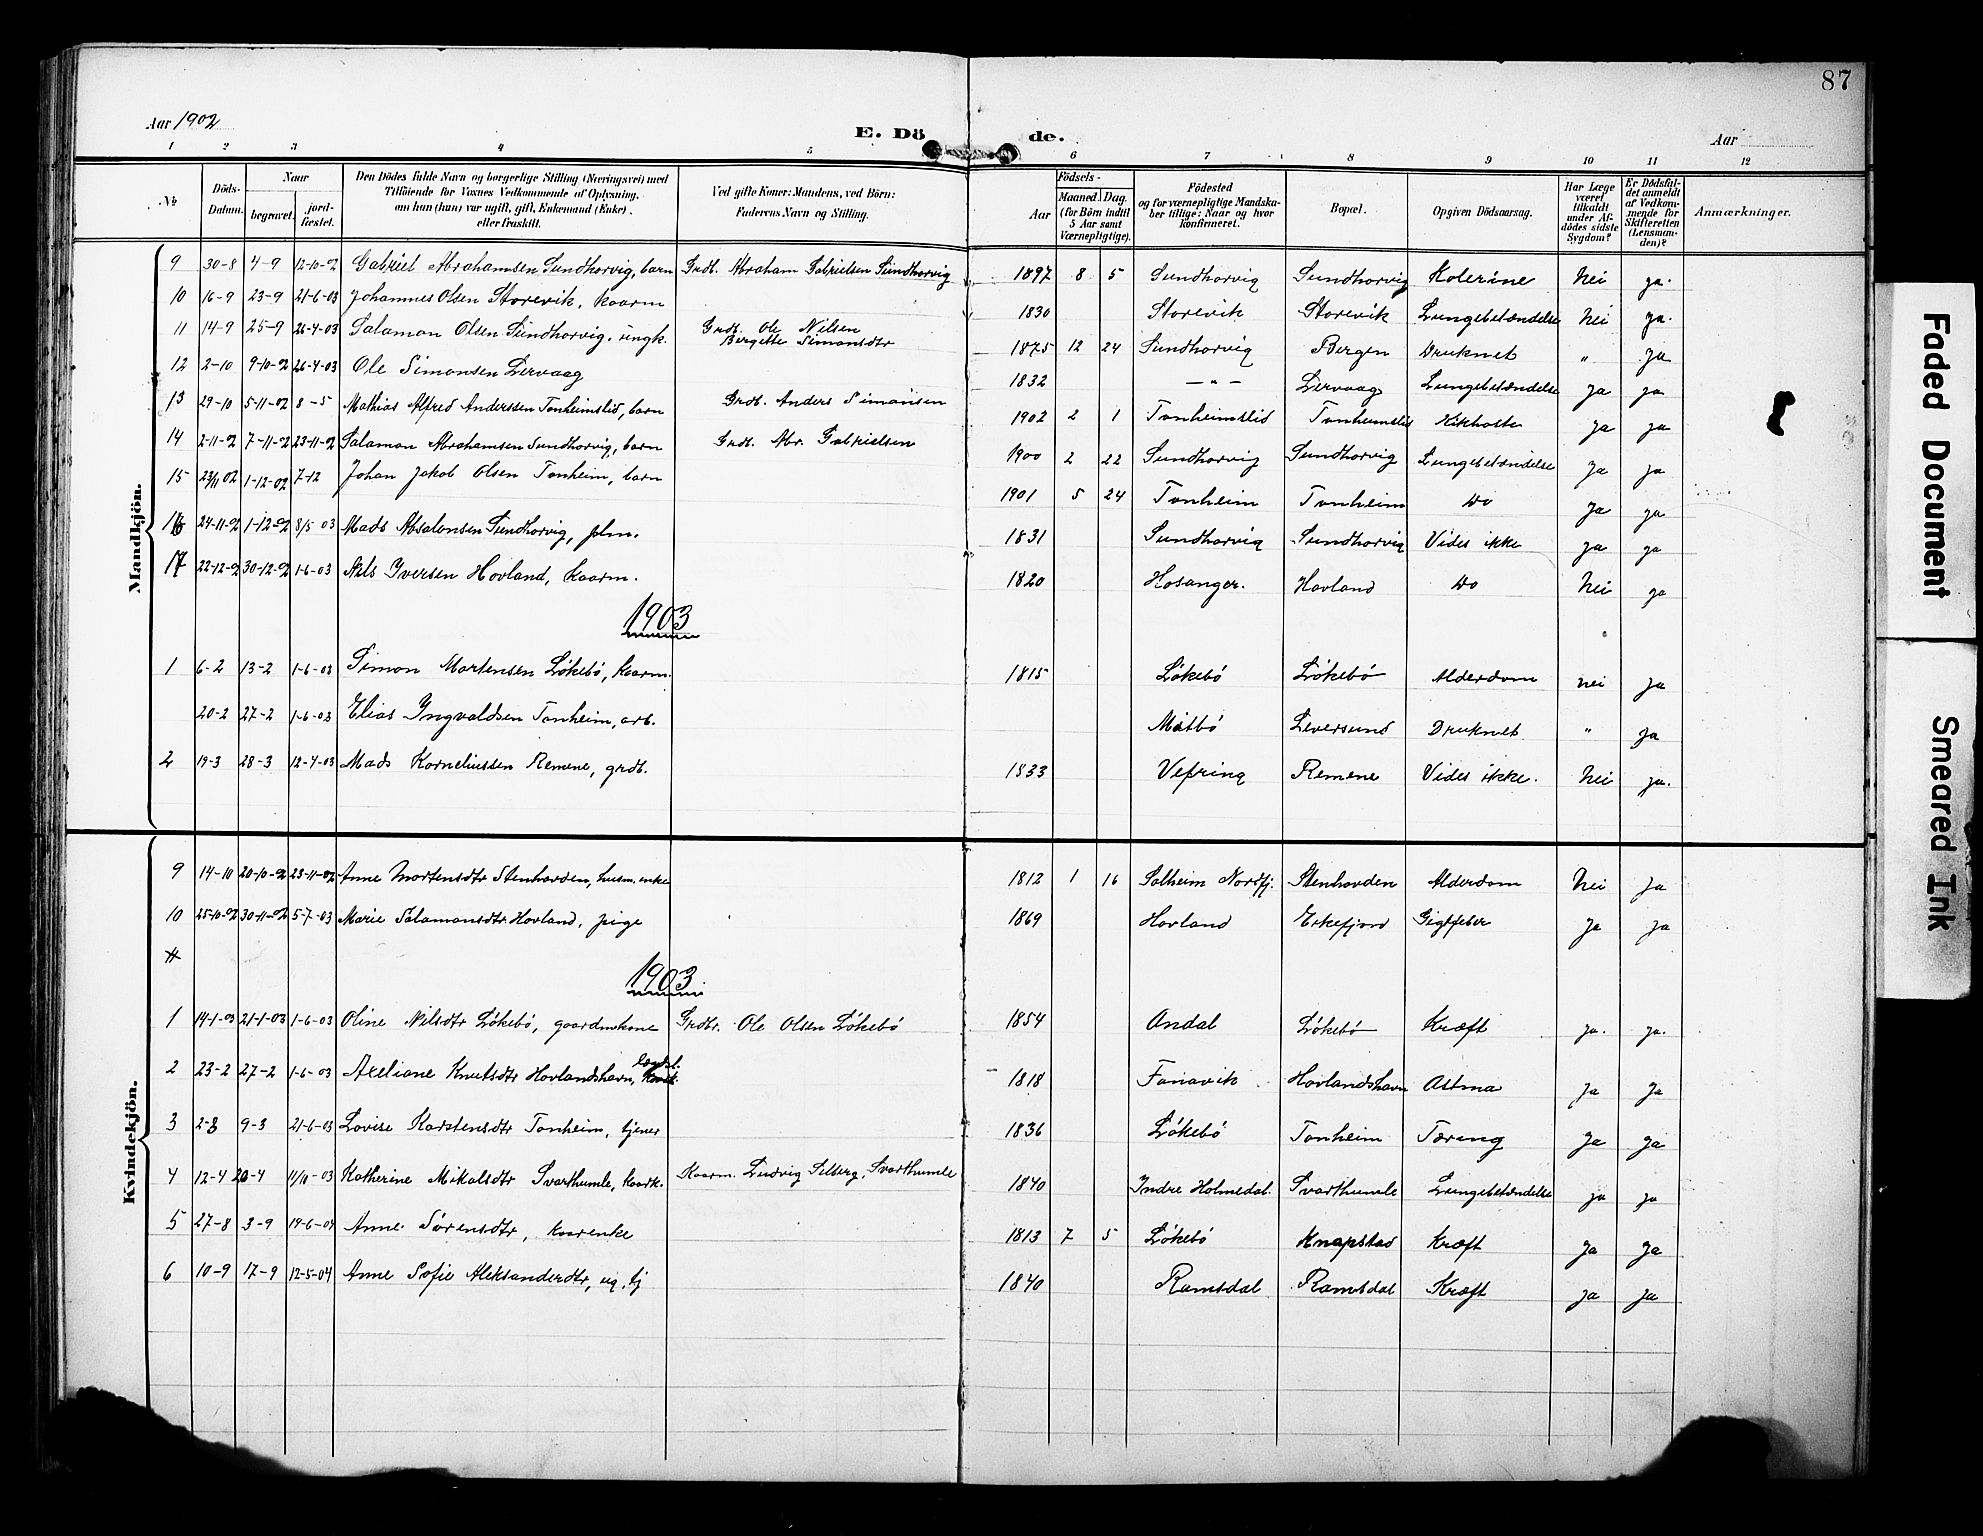 87
Aar 1902
E. Dö de.
Aar
1 2 3 4 5 6 7 8 9 10 11 12
No
Döds-Datum.
Naar
begravet.
jord-fæstet.
Den Dödes fulde Navn og borgerlige Stilling (Næringsvei) med
Tilföiende for Voxnes Vedkommende af Oplysning,
om hun (han) var ugift, gift, Enkemand (Enke),
eller fraskilt.
Ved gifte Koner: Mandens, ved Börn:
Faderens Navn og Stilling.
Födsels-
Aar
Maaned Dag.
(for Börn indtil
5 Aar samt
Værnepligtige).
Födested
og for værnepligtige Mandska-
ber tillige: Naar og hvor
konfirmeret.
Bopæl.
Opgiven Dödsaarsag.
Har Læge
været
tilkaldt
under Af-
dödes sidste
Sygdom?
Er Dödsfal-
det anmeldt
af Vedkom-
mende for
Skifteretten
(Lensman-
den)?
Anmærkninger.
Mandkjön.
9 30-8 4-9 12-10-02 Gabriel Abrahamsen Sundhorvig, barn Grdb. Abraham Gabrielsen Sundhorvig 1897 8 5 Sundhorvig Sundhorvig Kolerine Nei ja.
10 16-9 23-9 21-6-03 Johannes Olsen Storevik, kaarm 1830 Storevik Storevik Lungebetændelse Nei ja.
11 14-9 25-9 26-4-03 Salamon Olsen Sundhorvig, ungk. Grdb. Ole Nilsen
Bergitte Simonsdtr 1875 12 24 Sundhorvig Bergen Druknet " ja
12 2-10 9-10-02 26-4-03 Ole Simonsen Lervaag 1832 — " — Lervaag Lungebetændelse ja ja
13 29-10 5-11-02 8-5 Mathias Alfred Anderssen Tonheimslid, barn Grdb. Anders Simonsen 1902 2 1 Tonheimslid Tonheimslid Kikhoste ja ja
14 2-11-02 7-11-02 23-11-02 Salamon Abrahamsen Sundhorvig, barn Grdb. Abr. Gabrielsen 1900 2 22 Sundhorvig Sundhorvig Lungebetændelse ja ja
15 23/11 02 1-12-02 7-12 Johan Jakob Olsen Tonheim, barn 1901 5 24 Tonheim Tonheim Do ja ja
16 24-11-02 1-12-02 8/5 03 Mads Absalonsen Sundhorvig, 1831 Sundhorvig Sundhorvig Vides ikke ja ja
17 22-12-02 30-12-02 1-6-03 Nils Iversen Hovland, kaarm. 1820 Hosanger. Hovland Do Nei ja
1903
1 6-2 13-2 1-6-03 Simon Mortensen Løkebø, kaarm. 1815 Løkebø Løkebø Alderdom nei ja
20-2 27-2 1-6-03 Elias Ingvaldsen Tonheim, arb. Måtbø Leversund Druknet. " ja
2 19-3 28-3 12-4-03 Mads Korneliussen Remene, grdb. 1833 Vefring Remene Vides ikke. Nei ja.
Kvindekjön.
9 14-10 20-10-02 23-11-02 Anne Mortensdtr Stenhovden, husm. enke 1812 1 16 Solheim Nordfj. Stenhovden Alderdom Nei ja
10 25-10-02 30-11-02 5-7-03 Marie Salamonsdtr Hovland, pige 1869 Hovland Eikefjord Gigtfeber ja ja
1903
1 14-1-03 21-1-03 1-6-03 Oline Nilsdtr Løkebø, gaardmkone Grdbr. Ole Olsen Løkebø 1854 Andal Løkebø Kræft ja. ja.
2 23-2 27-2 1-6-03 Axeliane Knutsdtr Hovlandshavn, 1818 Fanavik Hovlandshavn Astma ja ja
3 2-3 9-3 21-6-03 Lovise Karstensdtr Tonheim, tjener 1836 Løkebø Tonheim Tæring ja ja
4 12-4 20-4 11/10-03 Katherine Mikalsdtr Svarthumle, kaark. Kaarm. Ludvig Selberg, Svarthumle 1840 Indre Holmedal. Svarthumle Lungebetændelse ja ja
5 27-8 3-9 19-6-04 Anne Sørensdtr, kaarenke 1813 7 5 Løkebø Knapstad Kræft ja ja
6 10-9 17-9 12-5-04 Anne Sofie Aleksanderdtr, ug. tj 1840 Ramsdal Ramsdal Kræft ja ja
Faded Document
Smeared Ink